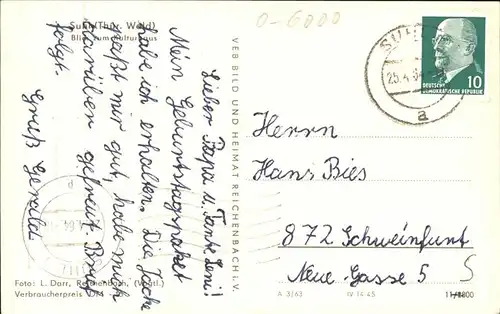 Suhl (Thür. Wald)
Blick zum Kulturhaus
O-6000
Lieber Papa u. Tante Leni!
Mein Geburtstagspaket
habe ich erhalten. Die Jacke
paßt mir gut, habe mich
darüber gefreut. Brief
folgt.
Gruß Gerald
VEB BILD UND HEIMAT REICHENBACH i. V.
SUHL
25.4.64
a
DEUTSCHE
DEMOKRATISCHE REPUBLIK
10
Herrn
Hans Bies
872 Schweinfurt
Neue-Gasse 5
5
Foto: L. Darr, Reichenbach, (Vogtl.)
Verbraucherpreis DM
A 3/63
IV-14-45